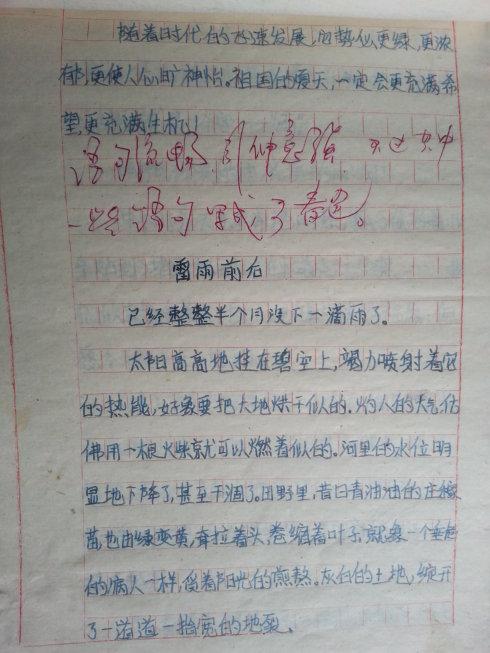 随着时代的飞速发展,它势必更绿,更浓
郁,更使人心旷神怡。祖国的夏天,一定会更充满希
望,更充满生机!
语句流畅,引伸意强 不过文中
一些语句写成了春天。
雷雨前后
已经整整半个月没下一滴雨了。
太阳高高地挂在碧空上,竭力喷射着它
的热能,好象要把大地烘干似的。灼人的天气仿
佛用一根火柴就可以燃着似的。河里的水位明
显地下降了,甚至干涸了。田野里,昔日青油油的庄稼
苗,也由绿变黄,耷拉着头,卷缩着叶子,就象一个垂危
的病人一样,受着阳光的煎熬。灰白的土地,绽开
了一道道一指宽的地裂。